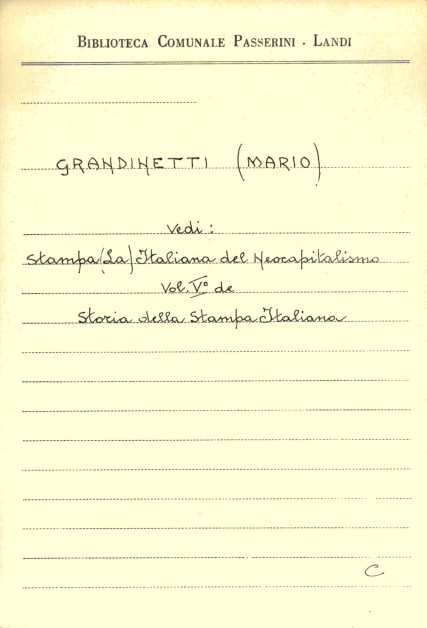 BIBLIOTECA COMUNALE PASSERINI - LANDI
GRANDINETTI (MARIO)
Vedi:
Stampa (La) Italiana del Neocapitalismo
Vol. V° de
Storia della Stampa Italiana
C